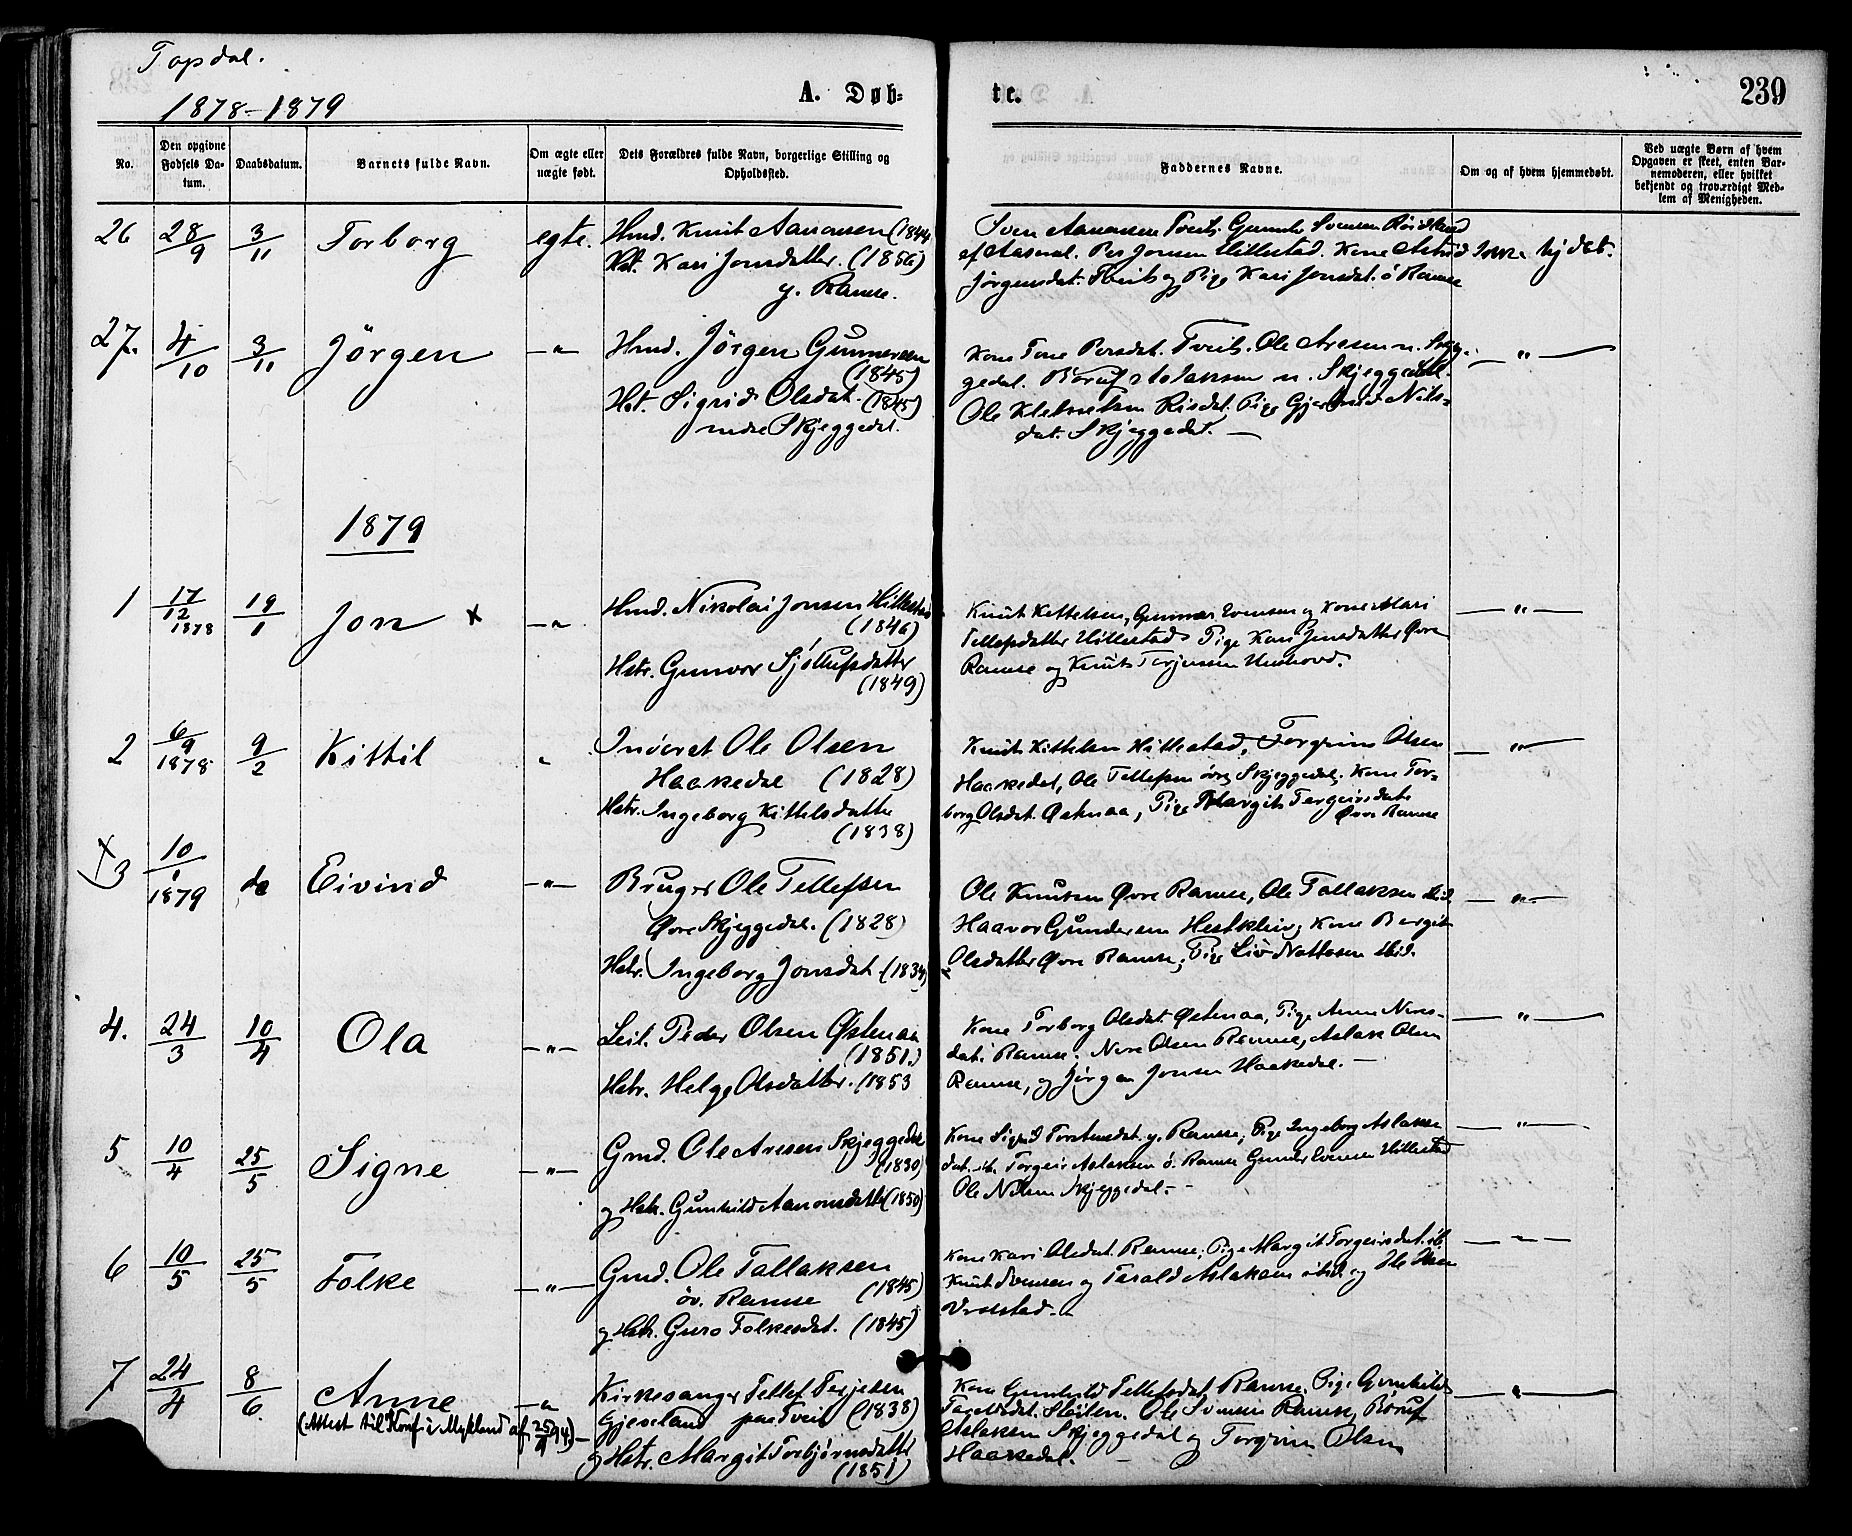 Topdal.
1878-1879
A. Døb=
te.
239
No.
Den opgivne Fødsels Da-
tum.
Daabsdatum.
Barnets fulde Navn.
Om ægte eller
uægte født.
Dets Forældres fulde Navn, borgerlige Stilling og
Opholdssted.
Faddernes Navne.
Om og af hvem hjemmedøbt.
Ved uægte Børn af hvem
Opgaven er skeet, enten Bar-
nemoderen, eller hvilket
bekjendt og troværdigt Med-
lem af Menigheden.
26 28/9 3/11 Torborg egte. Hmd. Knut Aanonsen (1844
Hst. Kari Jonsdatter. (1856)
y. Ramse.
Sven Aanonsen Tveit. Gunder Svensen
Per Jonsen Hillestad. Kone Astrid Ikke hjdøbt.
Jörgensdat. Tveit og Pige Kari Jonsdat. ö Ramse
27. 4/10 3/11 Jörgen —"— Hmd. Jörgen Gunnersen
(1845)
Hst. Sigrid Olsdat. (1845)
nedre Skjeggedal.
Kone Tone Persdat. Tveit. Ole Aresen n. Skjeg- —"—
gedal. Böruf Aslaksen n. Skjeggedal.
Ole Klemetsen Risdal. Pige Gjertrud Nils-
dat. Skjeggedal. —
1879
1 17/12 1878 19/1 Jon x —"— Hmd. Nikolai Jonsen Hillestad
(1846)
Hstr. Gunvor Sjöllufsdatter
(1849)
Knut Kettelsen, Gunnar Svensen og Kone Mari —"—
Tellefsdatter Hillestad Pige Kari Jonsdatter Øvre
Ramse og Knut Terjesen
2 6/9 1878 9/2 Kittil " Inderst Ole Olsen
Haakedal (1828)
Hstr. Ingeborg Kittelsdatter
(1838)
Knut Kittelsen Hillestad, Torgrim Olsen —"—
Haakedal, Ole Tellefsen övre Skjeggedal, Kone Tor-
borg Olsdat. Østenaa, Pige Margit Torgeirsdat.
Øvre Ramse
x 3 10/1 1879 do Eivind —"— Bruger Ole Tellefsen
Øvre Skjeggedal. (1828)
Hstr. Ingeborg Jonsdat. (1834)
Ole Knutsen Øvre Ramse, Ole Tallaksen ibid. —"—
Haavor Gundersen Hestkleiv, Kone Bergit
Olsdatter Øvre Ramse, Pige Liv ibid.
4. 24/3 10/4 Ola —"— Leil. Peder Olsen Østenaa
(1851.)
Hstr. Helge Olsdatter. (1853
Kone Torborg Olsdat. Østenaa, Pige Anne Neres- —"—
dat. Ramse. Nere Olsen Ramse, Aslak Olsen
Ramse, og Jörgen Jonsen Haakedal. —
5 10/4 25/5 Signe —"— Gmd. Ole Aresen Skjeggedal
(1830)
og Hstr. Gunhild Aanonsdatter (1850)
Kone Sigrid Torstensdat. y. Ramse, Pige Ingeborg Aslaks- —"—
dat. ib. Torgeir Aslaksen ö. Ramse Gunder Svensen Hillestad
Ole Nilsen Skjeggedal. -
6 10/5 25/5 Folke —"— Gmd. Ole Tallaksen
öv. Ramse (1845)
og Hstr. Guro Folkesdat. (1845)
Kone Kari Olsdat. Ramse, Pige Margit Torgeirsdat. ib. —"—
Knut Svensen og Tarald Aslaksen ibid. og Ole
7 24/4 8/6. Anne —"— Kirkesanger Tellef Terjesen
Gjeseland paa Tveit (1838)
og Hstr. Margit Torbjörnsdatter
(1851)
(Attest til Konf. i Mykland af 25/9 94.) —
Kone Gunhild Tellefsdat. Ramse. Pige Gunhild —"—
Ole Svensen Ramse, Böruf
Aslaksen Skjeggedal og Torgrim Olsen
Haakedal. —